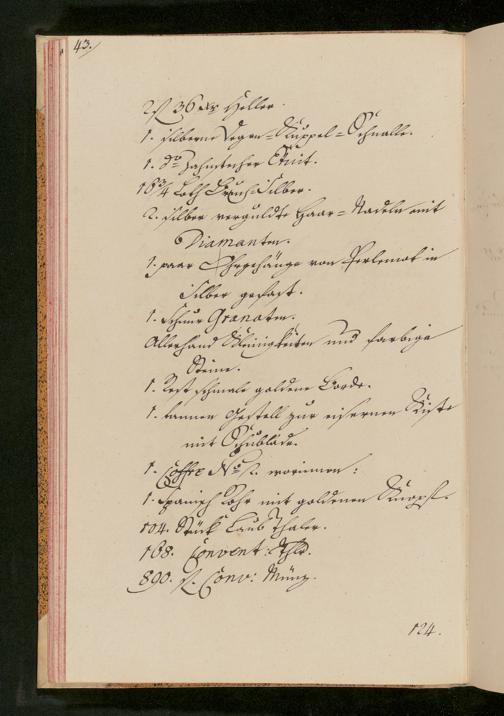 43.
2 f 36 xr Heller.
1. silberne Degen=Kuppel=Schnalle.
1. do Zahnstecher Etuit.
16 3/4 Loth Bruch Silber.
2. silber verguldte Haar=Nadeln mit
Diamanten.
1. paar Ohrgehänge von Perlemot in
Silber gefast.
1. Schnur Granaten.
Allerhand Kleinigkeiten und farbige
Steine.
1. Rest schmale goldene Borde.
1. tannen Gestell zur eisernen Kiste
mit Schublade.
1. Coffre No worinnen:
1. spanisch Rohr mit goldenen Knopf.
104. Stück Laub Thaler.
168. Convent: Thlr.
890. f. Conv: Münz.
124.